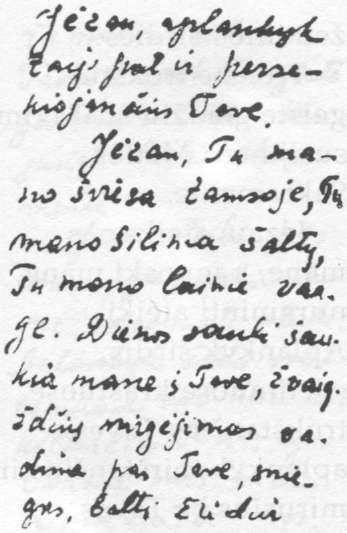 Jėzau, aplankyk
taip pat ir perse-
kiojančius Tave.
Jėzau, Tu ma-
no šviesa tamsoje, Tu
mano šiluma šalty,
Tu mano laimė var-
ge. Dienos saulė šau-
kia mane į Tave, žvaig-
ždžių mirgėjimas va-
dina pas Tave, snie-
gas, balti žiedai